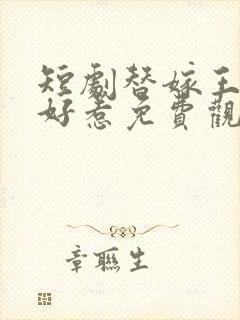 短劇替嫁王
好惹免費觀
章聯生